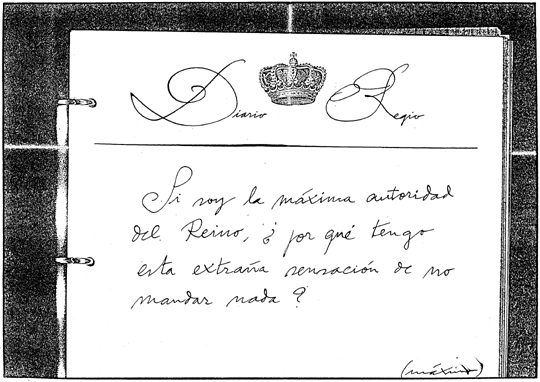 Diario Regio
Si soy la máxima autoridad
del Reino, ¿por qué tengo
esta extraña sensación de no
mandar nada?
(máximo)